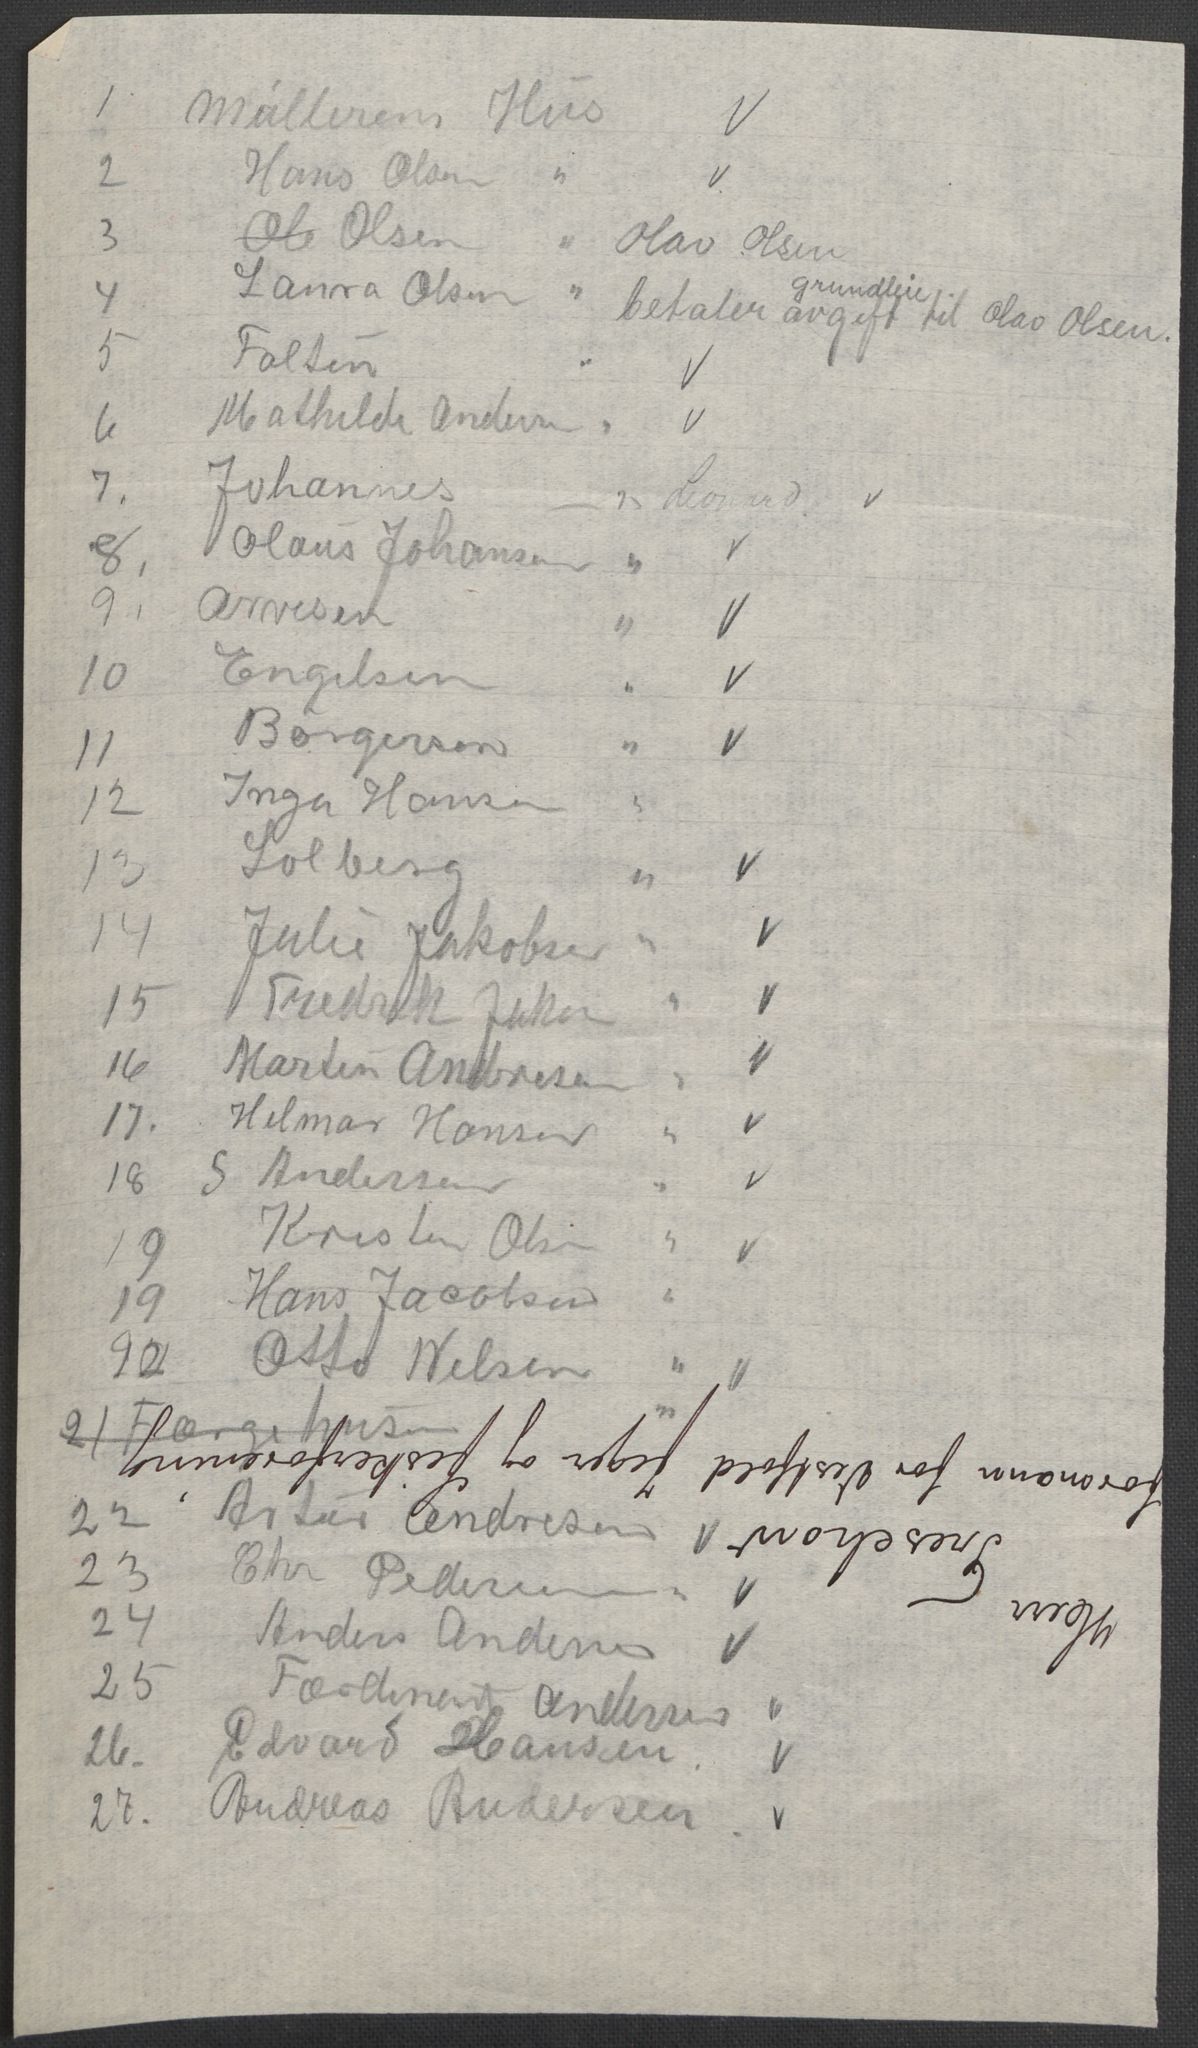 1 Møllerens Hus V
2 Hans Olsen " V
3 Ole Olsen " Olav Olsen
4 Laura Olsen " betaler grundleie avgift til Olav Olsen.
5 Faltin " V
6 Mathilde Andersen " V
7. Johannes — " Leonard. V
8. Olaus Johansen " V
9. Arvesen " V
10 Engelsen " V
11 Börgersen " V
12 Inga Hansen "
13 Solberg " V
14 Julie Jakobsen " V
15 Fredrik Jakob " V
16 Martin Andresen " V
17. Helmar Hansen " V
18 S Andersen " V
19 Kristen Olsen " V
19 Hans Jacobsen "
20 Otto Nelsen " "
21 Færgehusen "
22 Artur Andresen V
23 Chr Pedersen " V
24 Anders Andersen V
25 Færdinant Andersen "
26. Edvard Hansen. V
27. Andreas Andersen. V
Herr
Treschow
formann for Vestfold Jeger og Fiskerforening,